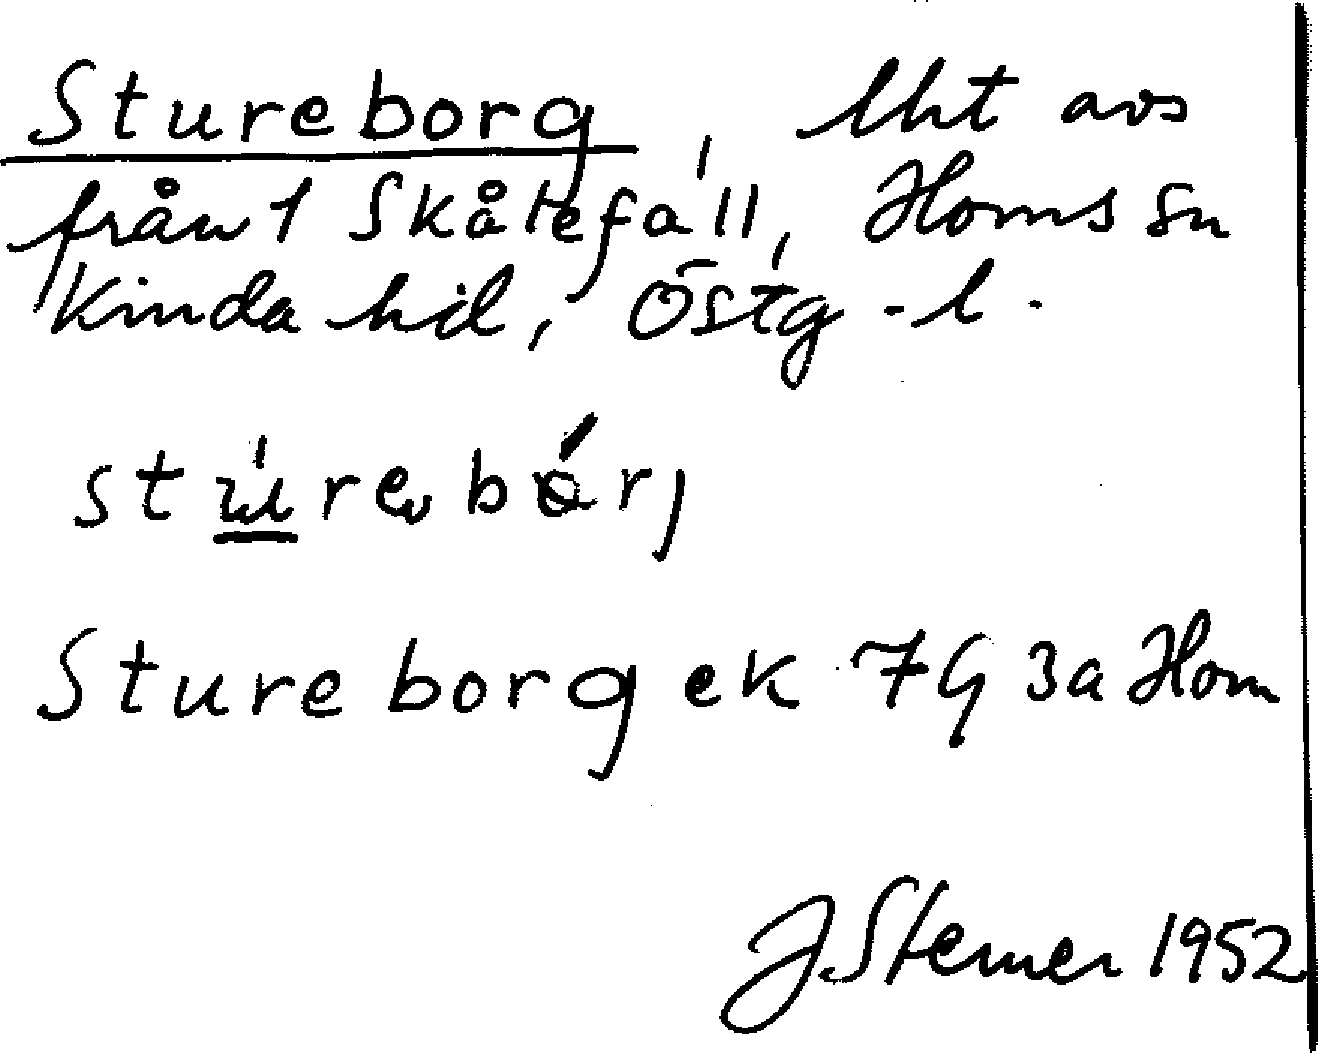 Stureborg, lht avs
från 1 Skåtefall, Horns sn
Kinda hd, Östg -l.
stúrebór,
Stureborg ek 7G 3a Horn
J Sterner 1952